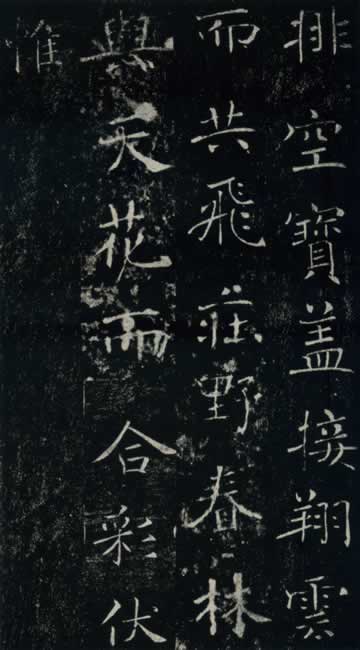 排空寶蓋接翔雲
而共飛莊野春林
與天花而合彩伏
惟